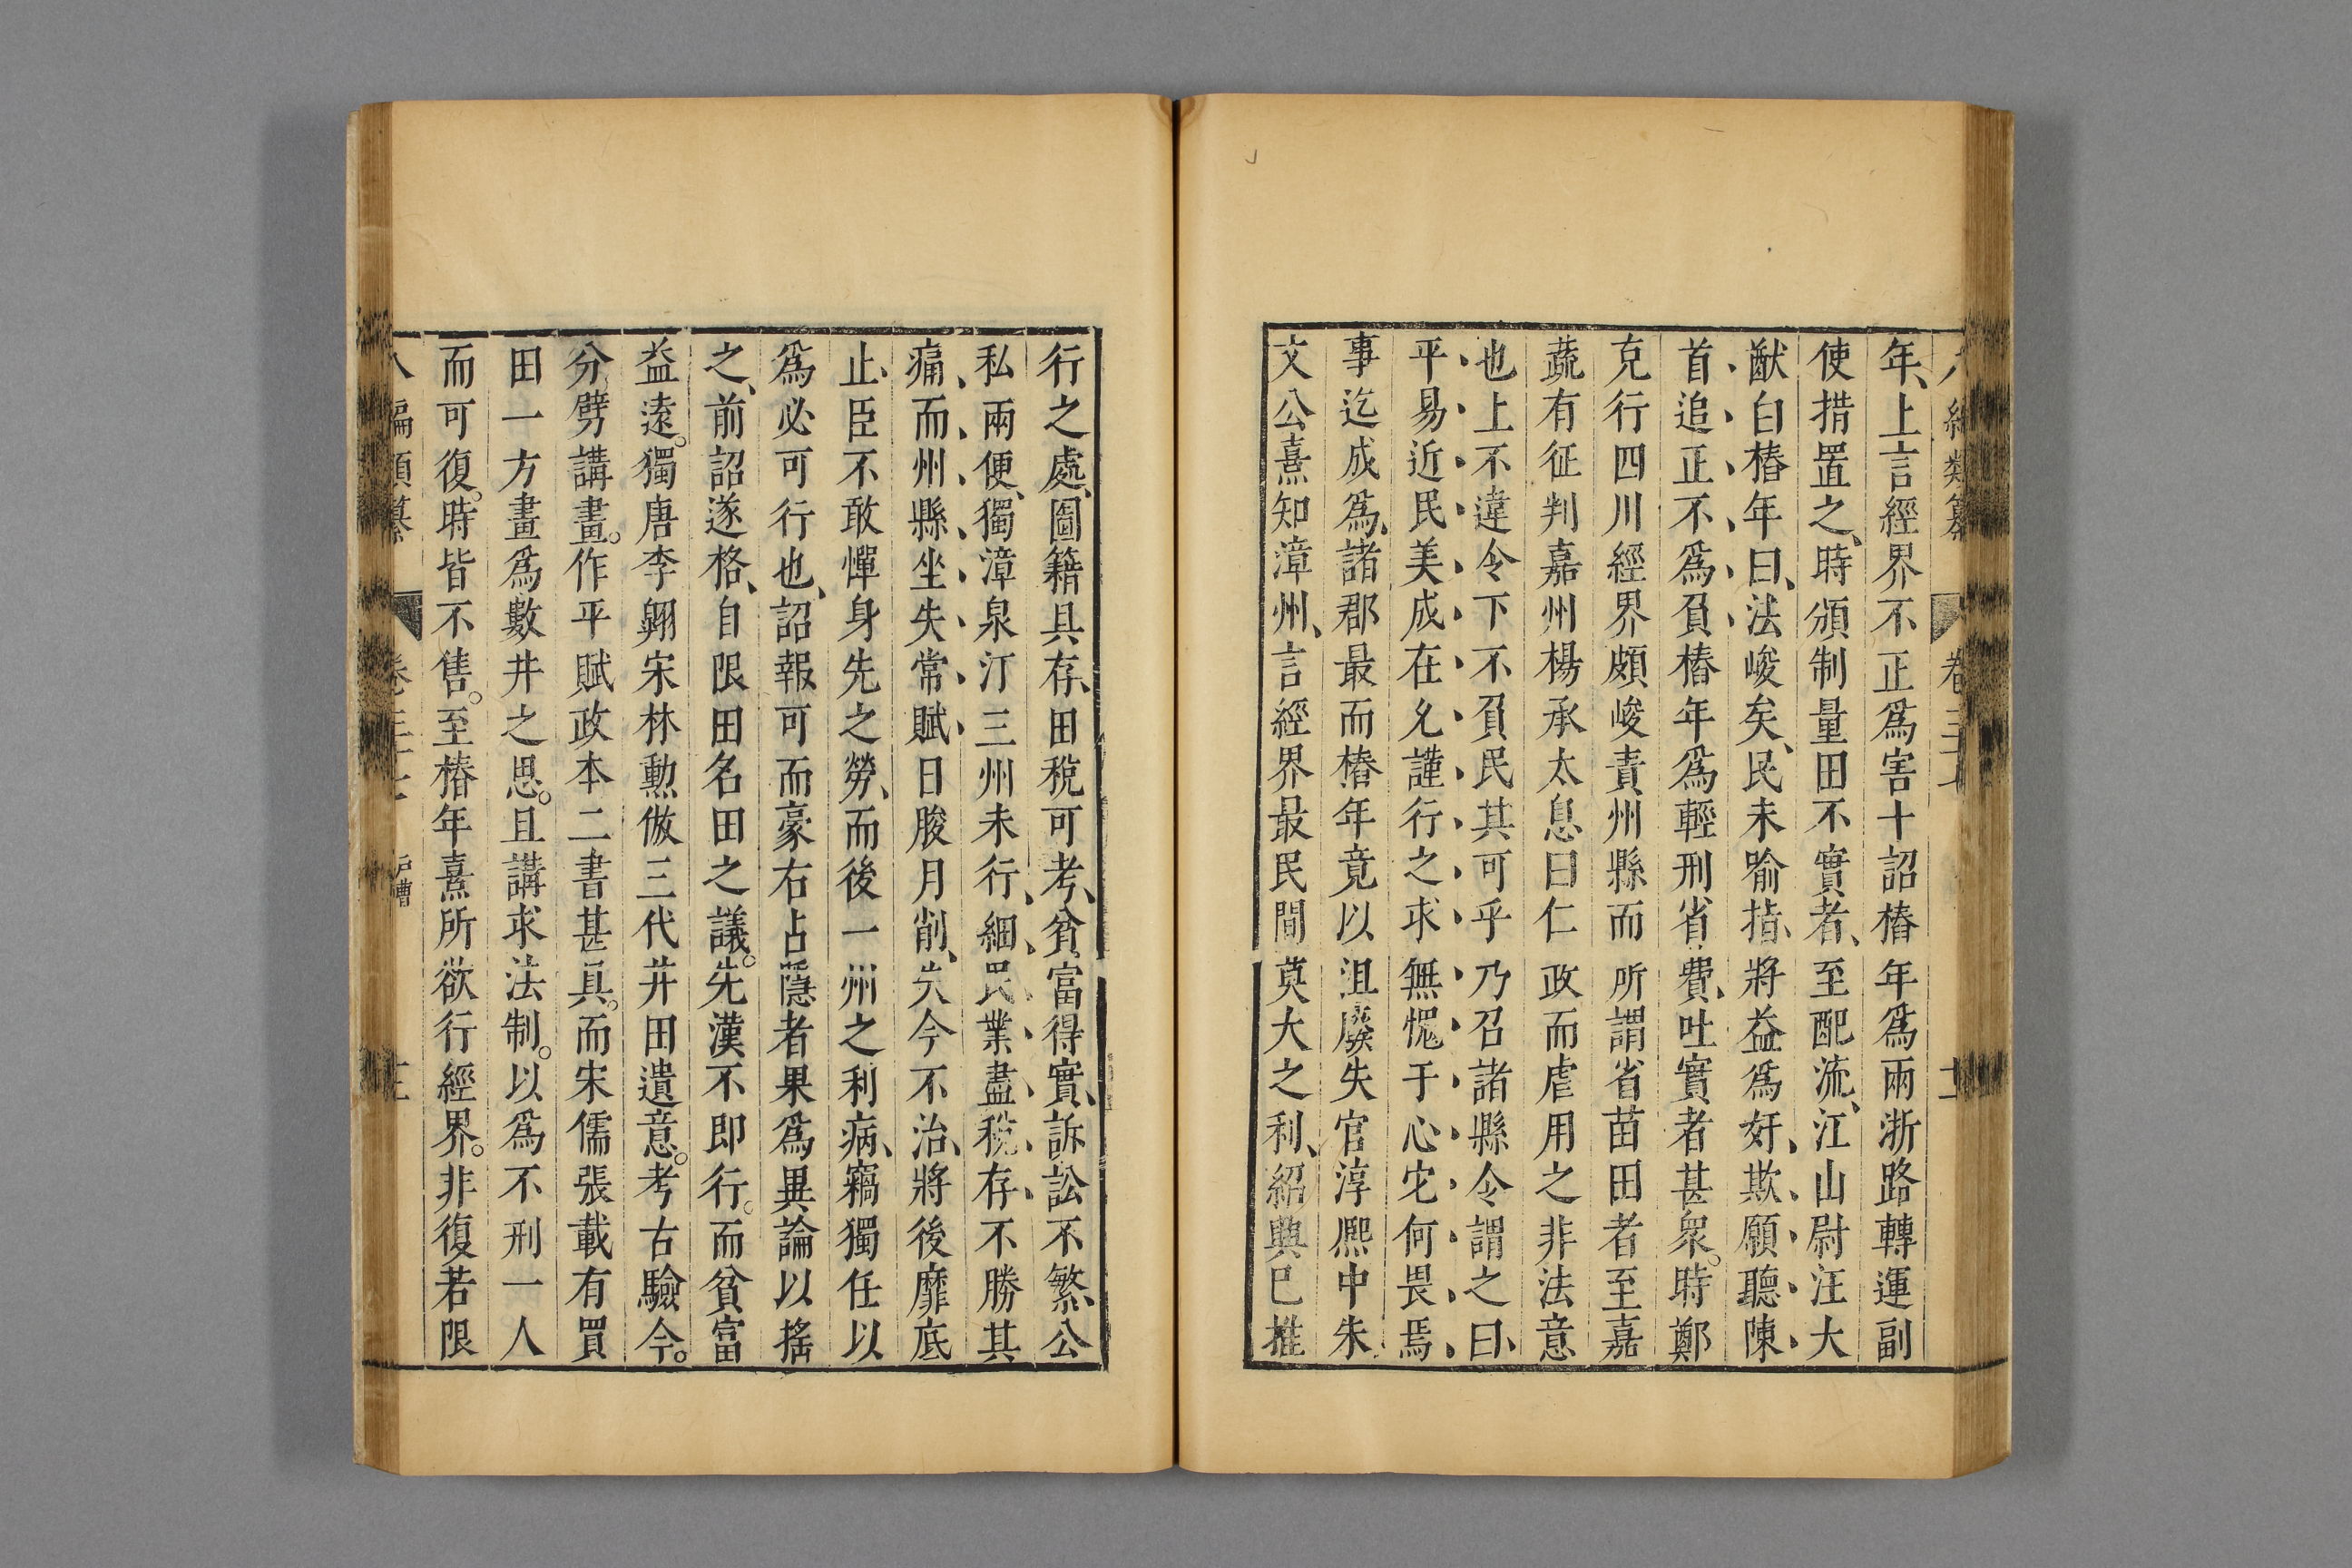 年、上言經界不正爲害十詔椿年爲兩浙路轉運副
使措置之、時頒制量田不實者、至配流、江山尉汪大
猷白椿年曰、法峻矣、民未喻指、將益爲奸、欺、願聽陳
首、追正不爲負椿年爲輕刑省費、吐實者甚衆。時鄭
克行四川經界頗峻責州縣而所謂省苗田者至嘉
蔬有征判嘉州楊承太息曰仁政而虐用之非法意
也上不違令下不負民其可乎乃召諸縣令謂之曰、
平易近民美成在久謹行之求無愧于心它何畏焉、
事迄成爲、諸郡最而椿年竟以沮廢失官淳熙中朱
文公熹知漳州、言經界最民間莫大之利、紹興巳推
行之處、圖籍具存、田稅可考、貧富得實、訴訟不繁、公
私兩便、獨漳泉汀三州未行、細民業盡稅存、不勝其
痛、而州縣坐失常賦日朘月削、失今不治、將後靡底
止、臣不敢憚身先之勞、而後一州之利病、竊獨任以
爲必可行也、詔報可而豪右占隱者果爲異論以搖
之、前詔遂格、自限田名田之議。先漢不即行。而貧富
益遠。獨唐李翺宋林勳倣三代井田遺意。考古驗今。
分劈講畫。作平賦政本二書甚具。而宋儒張載有買
田一方畫爲數井之思。且講求法制。以爲不刑一人
而可復。時皆不售。至椿年熹所欲行經界。非復若限